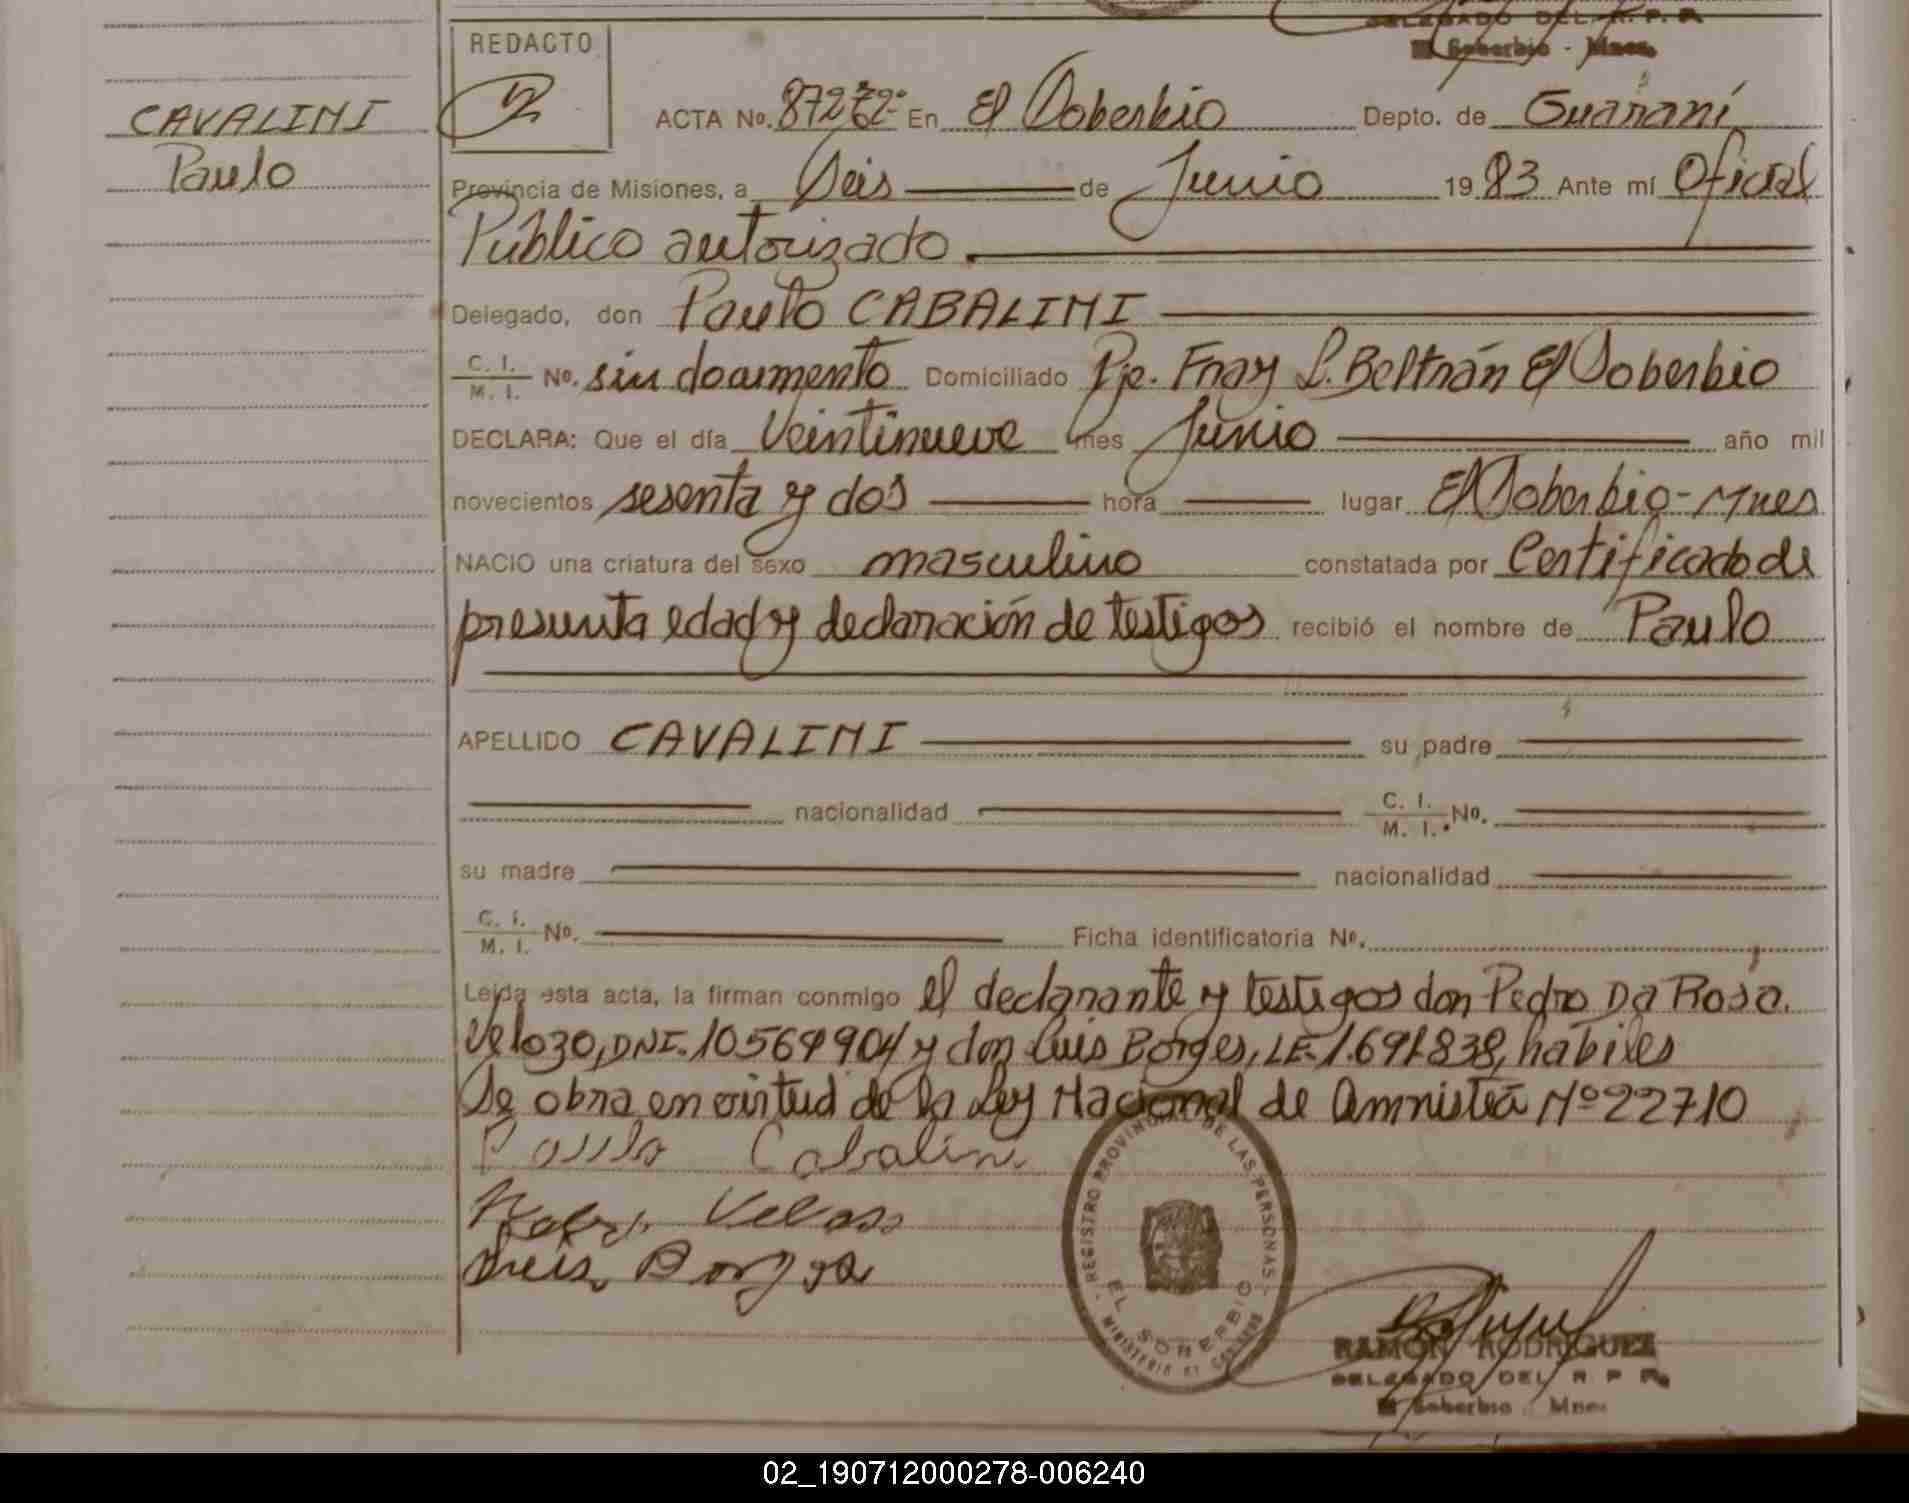 DELEGADO DEL R. P. P.
El Soberbio - Mnes.
REDACTO
CAVALINI
Paulo
ACTA No. 87262º En El Soberbio Depto. de Guaraní
Provincia de Misiones, a Seis de Junio 1983 Ante mí Oficial
Público autorizado
Delegado, don Paulo CABALINI
C. I. M. I. No. sin documento Domiciliado Pje. Fray L. Beltrán El Soberbio
DECLARA: Que el día Veintinueve mes Junio año mil
novecientos sesenta y dos hora lugar El Soberbio-Mnes
NACIO una criatura del sexo masculino constatada por Certificado de
presunta edad y declaración de testigos recibió el nombre de Paulo
APELLIDO CAVALINI su padre
nacionalidad C. I. M. I. No.
su madre nacionalidad
C. I. M. I. No. Ficha identificatoria No.
Leída esta acta, la firman conmigo el declarante y testigos don Pedro Da Rosa
Velozo, DNI. 10569904 y don Luis Borges, LE. 1.691.838, habiles
Se obra en virtud de la Ley Nacional de Amnistía Nº 22710
Paulo Cabalini
Velozo
Luis Borges
REGISTRO PROVINCIAL DE LAS PERSONAS
MINISTERIO DE GOBIERNO
EL SOBERBIO
RAMON RODRIGUEZ
DELEGADO DEL R P P.
El Soberbio Mnes
02_190712000278-006240